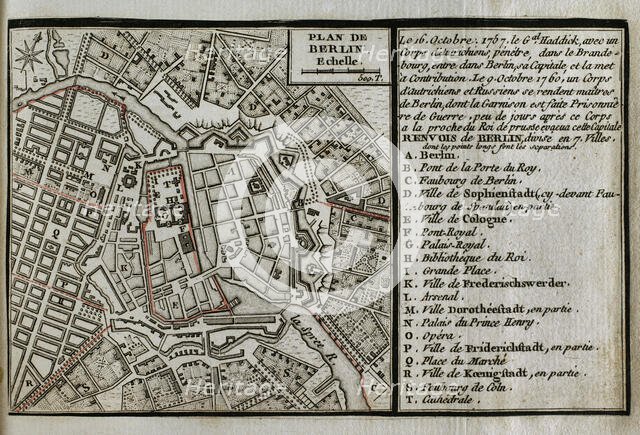 PLAN DE
BERLIN.
Echelle.
500. T.
Le 16. Octobre. 1757. le G.al Haddick, avec un
Corps d'Autrichiens, pénétre, dans le Brande-
bourg, entre dans Berlin, sa Capitale et la met
à Contribution. Le 9. Octobre 1760, un Corps
d'autrichiens et Russiens se rendent maîtres
de Berlin, dont la Garnison est faite Prisonnie-
re de Guerre, peu de jours après ce Corps
a la proche du Roi de prusse evacua cette Capitale
RENVOIS de BERLIN, divisé en 7. Villes.
dont les points longs sont les separations.
A. Berlin.
B. Pont de la Porte du Roy.
C. Faubourg de Berlin.
D. Ville de Sophienstadt, cy-devant Fau-
bourg de Spandau, en partie
E. Ville de Cologne.
F. Pont-Royal.
G. Palais-Royal.
H. Bibliothèque du Roi.
I. Grande Place.
K. Ville de Frederischswerder.
L. Arsenal.
M. Ville Dorothéestadt, en partie.
N. Palais du Prince Henry.
O. Opéra.
P. Ville de Friderichstadt, en partie.
Q. Place du Marché
R. Ville de Kœnigstadt, en partie.
S. Faubourg de Coln.
T. Cathédrale.
la Sprée R.
heritage
Heritage
Images